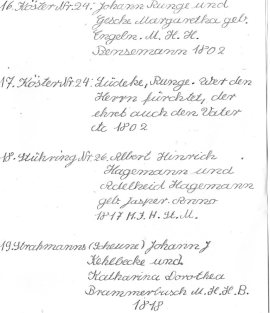 16. Köster Nr. 24: Johann Runge und
Gesche Margaretha geb.
Engeln. M. H. H.
Bensemann 1802
17. Köster Nr 24: Lüdeke, Runge. Wer den
Herrn fürchtet, der
ehret auch den Vater
etc 1802
18. Stühring Nr. 26. Albert Hinrich
Hagemann und
Adelheid Hagemann
geb. Jasper. Anno
1817 H. J. H. St. M.
19. Strahmanns (Scheune) Johann J
Kehlbecke und
Katharina Dorothea
Brammerbusch M. H. H. B.
1818